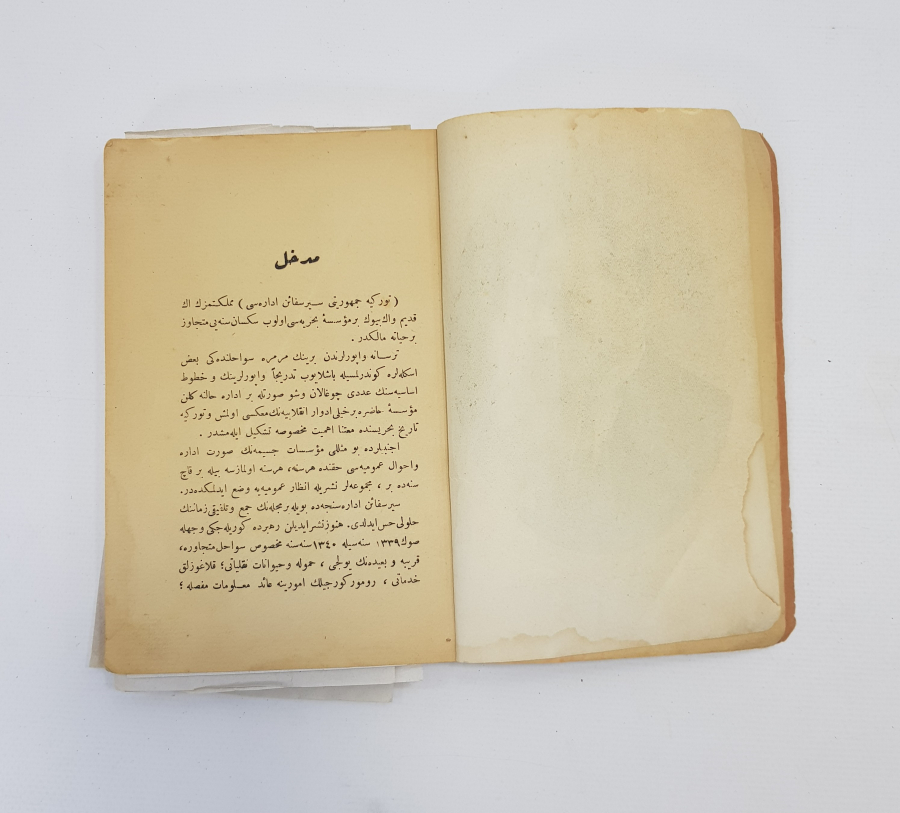 مدخل
( توركيه جمهوريتى سيرسفائن اداره‌سى ) مملكتمزك اك
قديم واك بيوك برمؤسسهٔ بحريه‌سى اولوب سكسان سنه‌يى متجاوز
برحياته مالكدر .
ترسانه وابورلرندن برينك مرمره سواحلنده‌كى بعض
اسكله‌لره كوندرلمسيله باشلايوب تدريجاً وابورلرينك و خطوط
اساسيه‌سنك عددى چوغالان وشو صورتله بر اداره حالنه كلن
مؤسسهٔ حاضره برخيلى ادوار انقلابيه‌نك معكسى اولمش وتوركيه
تاريخ بحريسنده معتنا اهميت مخصوصه تشكيل ايله‌مشدر .
اجنبيلرده بو مثللى مؤسسات جسيمه‌نك صورت اداره
واحوال عموميه‌سى حقنده هرسنه، هرسنه اولمازسه بيله بر قاچ
سنه‌ده بر ، مجموعه‌لر نشريله انظار عموميه‌يه وضع ايدلمكده‌در.
سيرسفائن اداره‌سنجه‌ده بويله برمجله‌نك جمع وتلفيقى زماننك
حلولى حس ايدلدى. هنوز نشر ايديلن رهبرده كوريله‌جكى وجهله
صوك ١٣٣٩ سنه‌سيله ١٣٤٠ سنه‌سنه مخصوص سواحل متجاوره،
قريبه و بعيده‌نك يولجى ، حموله وحيوانات نقلياتى؛ قلاغوزلق
خدماتى ، رومورکورجيلك امورينه عائد معلومات مفصله ؛